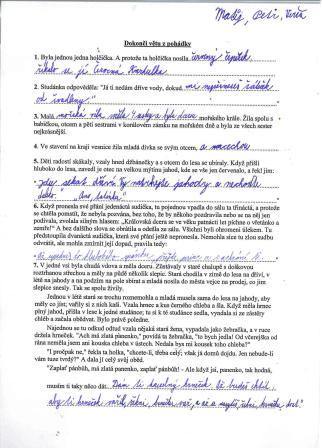 Matěj, Petr, Verča
Dokonči větu z pohádky
1. Byla jednou jedna holčička. A protože ta holčička nosila červený čepeček,
říkalo se jí Červená Karkulka.
2. Studánka odpověděla: "Já ti nedám dříve vody, dokud mi nepřineseš šátek
od švadleny."
3. Malá mořská víla měla 5 sester a byla dcera mořského krále. Žila spolu s
babičkou, otcem a pěti sestrami v korálovém zámku na mořském dně a byla ze všech sester
nejkrásnější.
4. Ve stavení na kraji vesnice žila mladá dívka se svým otcem, a macechou
5. Děti radostí skákaly, vzaly hned džbánečky a s otcem do lesa se ubíraly. Když přišli
hluboko do lesa, zavedl je otec na velkou mýtinu jahod, kde se vše jen červenalo, a řekl jim:
"Jdu sekat dřevo. Vy nasbírejte jahody a nechoďte
daleko." "Ano, tatínku".
6. Když pronesla své přání jedenáctá sudička, tu pojednou vpadla do sálu ta třináctá, a protože
se chtěla pomstít, že nebyla pozvána, bez toho, že by někoho pozdravila nebo se na něj jen
podívala, zvolala silným hlasem: "Královská dcera se ve věku patnácti let píchne o vřetánko a
zemře!" A bez dalšího slova se obrátila a odešla ze sálu. Všichni byli ohromeni úlekem. Tu
předstoupila dvanáctá sudička, která své přání ještě nepronesla. Nemohla sice tu zlou sudbu
odvolat, ale mohla zmírnit její dopad, pravila tedy:
7. V jedné vsi byla chudá vdova a měla dceru. Zůstávaly v staré chalupě s doškovou
roztrhanou střechou a měly na půdě několik slepic. Stará chodila v zimě do lesa na dříví, v
létě na jahody a na podzim na pole sbírat a mladá nosila do města vejce na prodej, co jim
slepice snesly. Tak se spolu živily.
Jednou v létě stará se trochu rozmohla a mladá musela sama do lesa na jahody, aby
měly co jíst; vařily si z nich kaši. Vzala hrnec a kus černého chleba a šla. Když měla hrnec
plný jahod, přišla v lese k jedné studánce; tu si k té studánce sedla, vyndala si ze zástěry
chléb a začala obědvat. Bylo právě poledne.
Najednou se tu odkud odtud vzala nějaká stará žena, vypadala jako žebračka, a v ruce
držela hrneček. "Ach má zlatá panenko", povídá ta žebračka, "to bych jedla! Od včerejška od
rána neměla jsem ani kouska chleba v ústech. Nedala bys mi kousek toho chleba?"
"I pročpak ne," řekla ta holka, "chcete-li, třeba celý; však já domů dojdu. Jen nebude-li
vám tuze tvrdý?" A dala jí celý svůj oběd.
"Zaplať pánbůh, má zlatá panenko, zaplať pánbůh! - Ale když jsi, panenko, tak hodná,
musím ti taky něco dát. Dám ti kouzelný hrneček. Až budeš chtít,
aby ti hrneček vařil, řekni, hrnečku vař, a až a nevařil, řekni, hrnečku, dost."